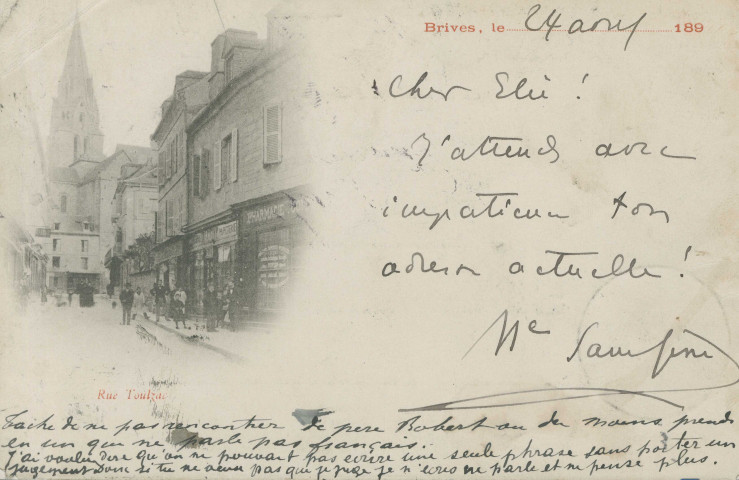 Brives, le 24 août 189
Cher Elie !
J'attends avec
impatience ton
adresse actuelle !
Mme Sans Gêne
PHARMACIE
Rue Toulzac
Tache de ne pas rencontrer de pere Robert ou du moins prends
en un qui ne parle pas français.
J'ai voulu dire qu'on ne pouvait pas ecrire une seule phrase sans porter un
jugement donc si tu ne veux pas que je juge je n'ecris ne parle et ne pense plus.